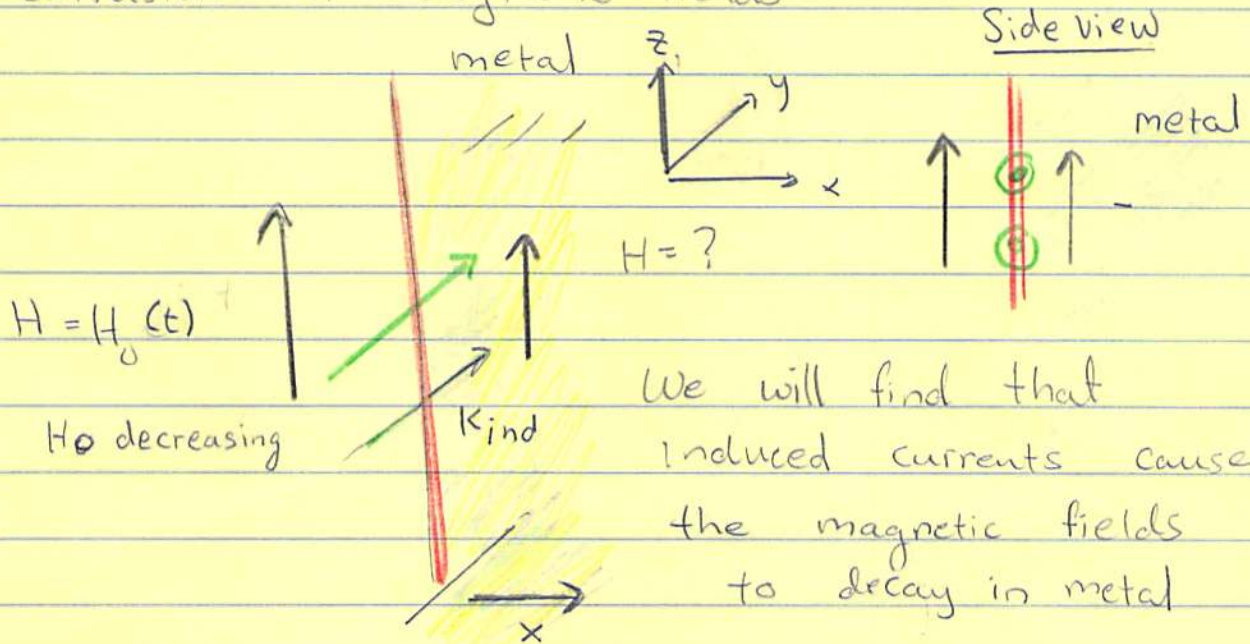 metal
z
y
x
Side view
metal
H = H₀(t)
H = ?
Ho decreasing
Kind
We will find that
induced currents cause
the magnetic fields
to decay in metal
x